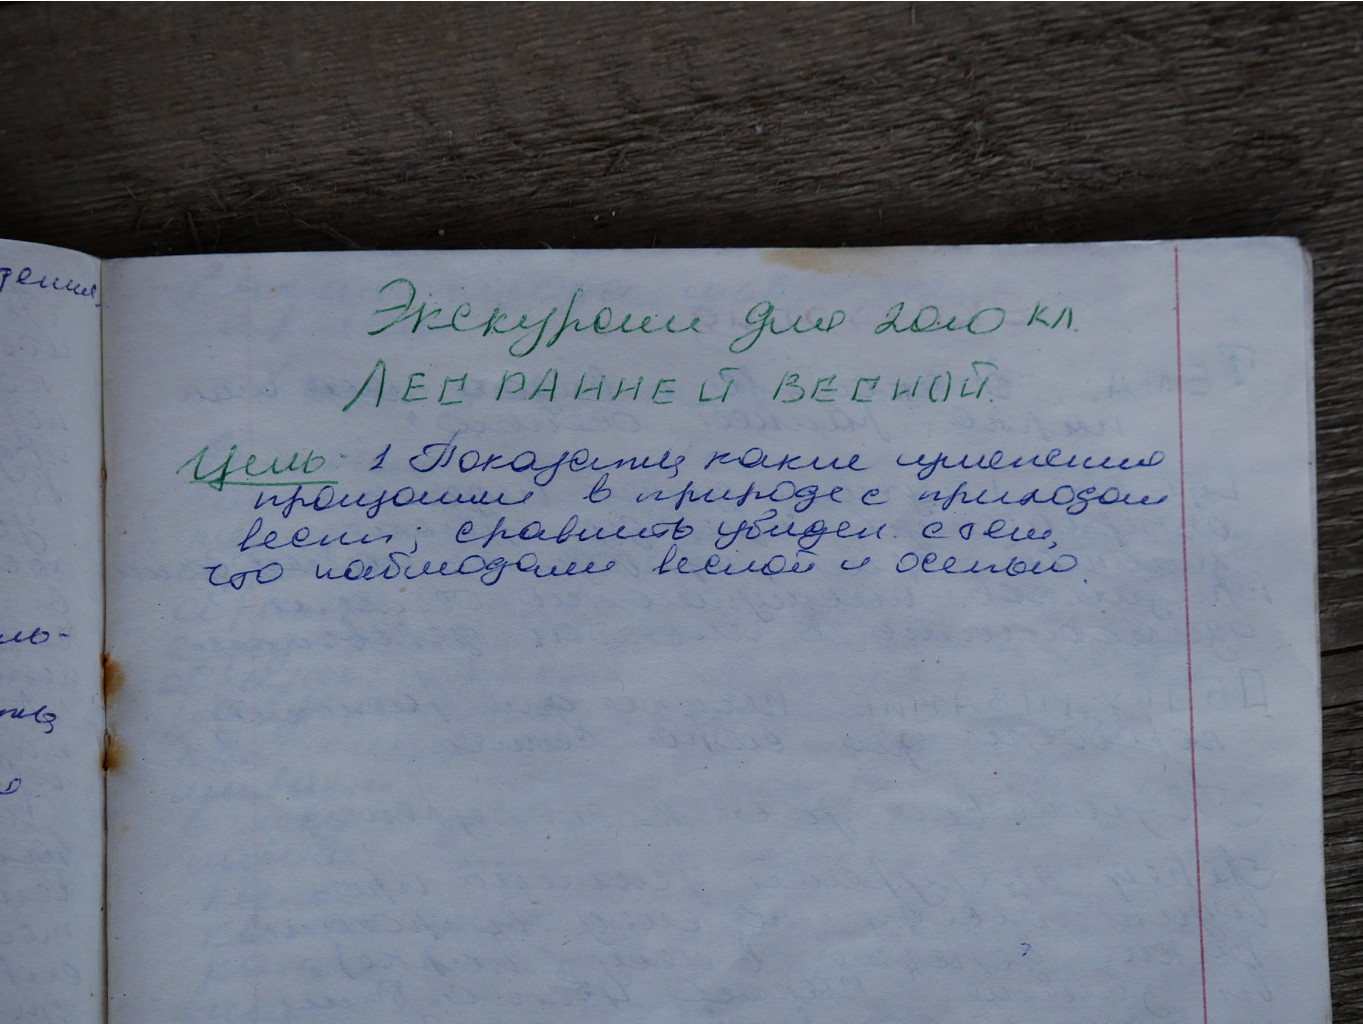 дения,
Экскурсии для 2ого кл.
ЛЕС РАННЕЙ ВЕСНОЙ.
Цель: 1 Показать какие изменения
произошли в природе с приходом
весны; сравнить увиден. с тем,
что наблюдали весной и осенью.
ль-